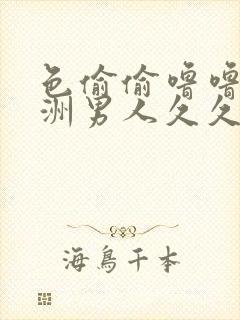 色偷偷噜噜
洲男人久久
海鳥千本